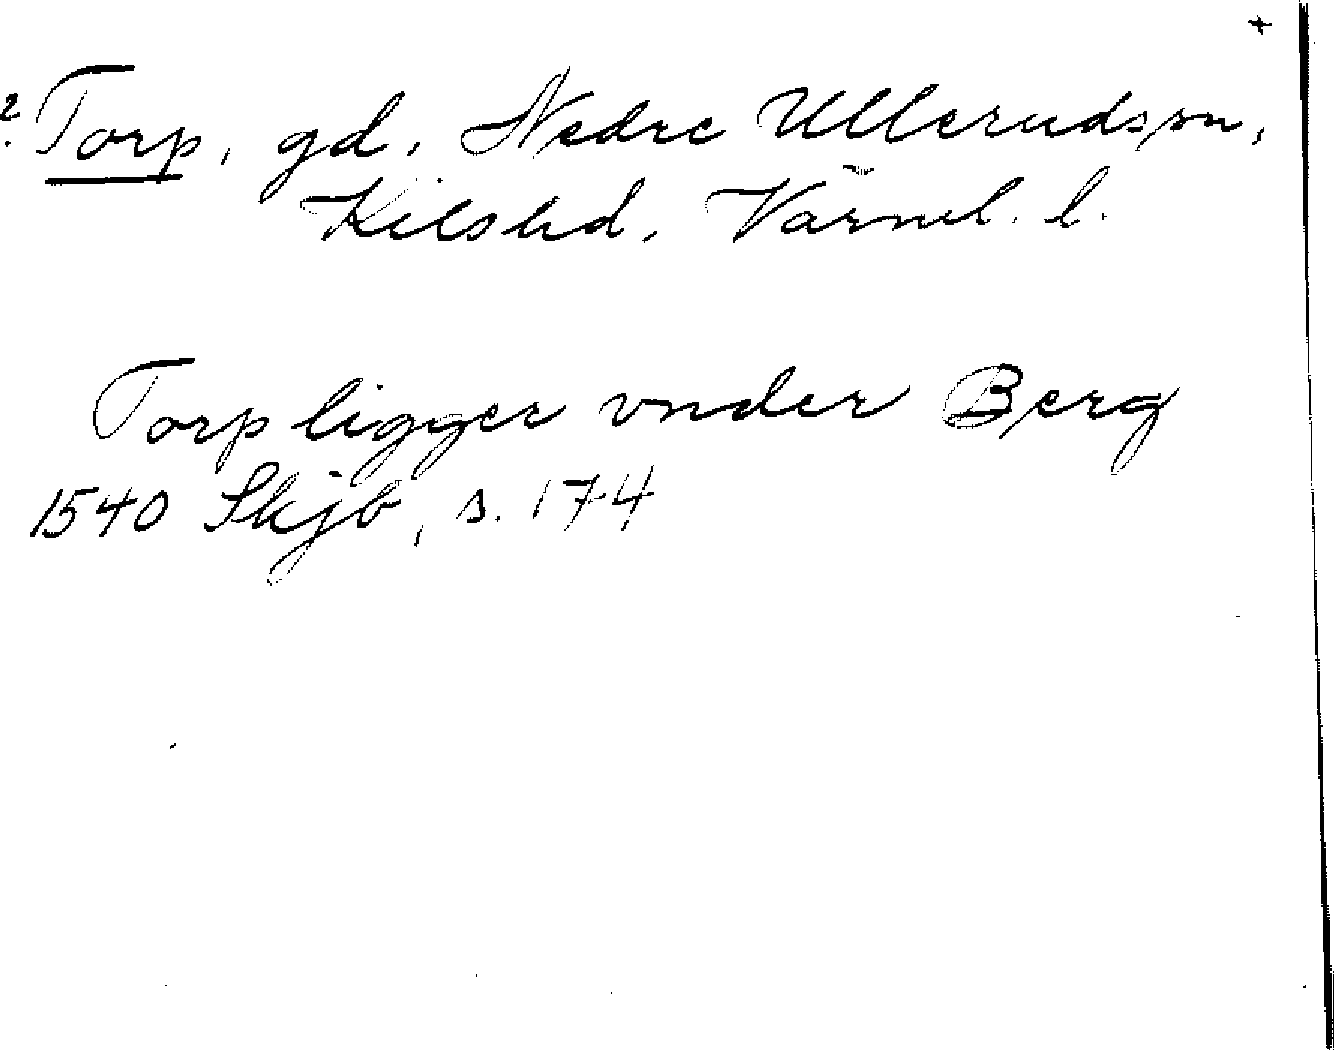 +
? Torp, gd, Nedre Ullerudssn,
Kilshd, Värml. l.
Torp ligger vnder Berg
1540 Skjb, s. 174